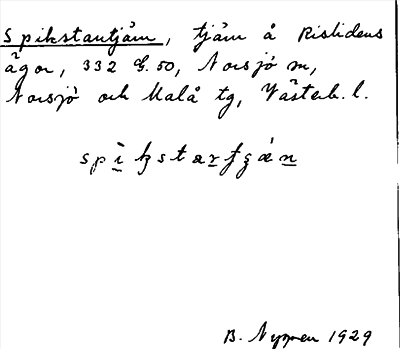 Spikstartjärn, tjärn å Rislidens
ägor, 332 G. 50, Norsjö sn,
Norsjö och Malå tg, Västerb. l.
B. Nyman 1929